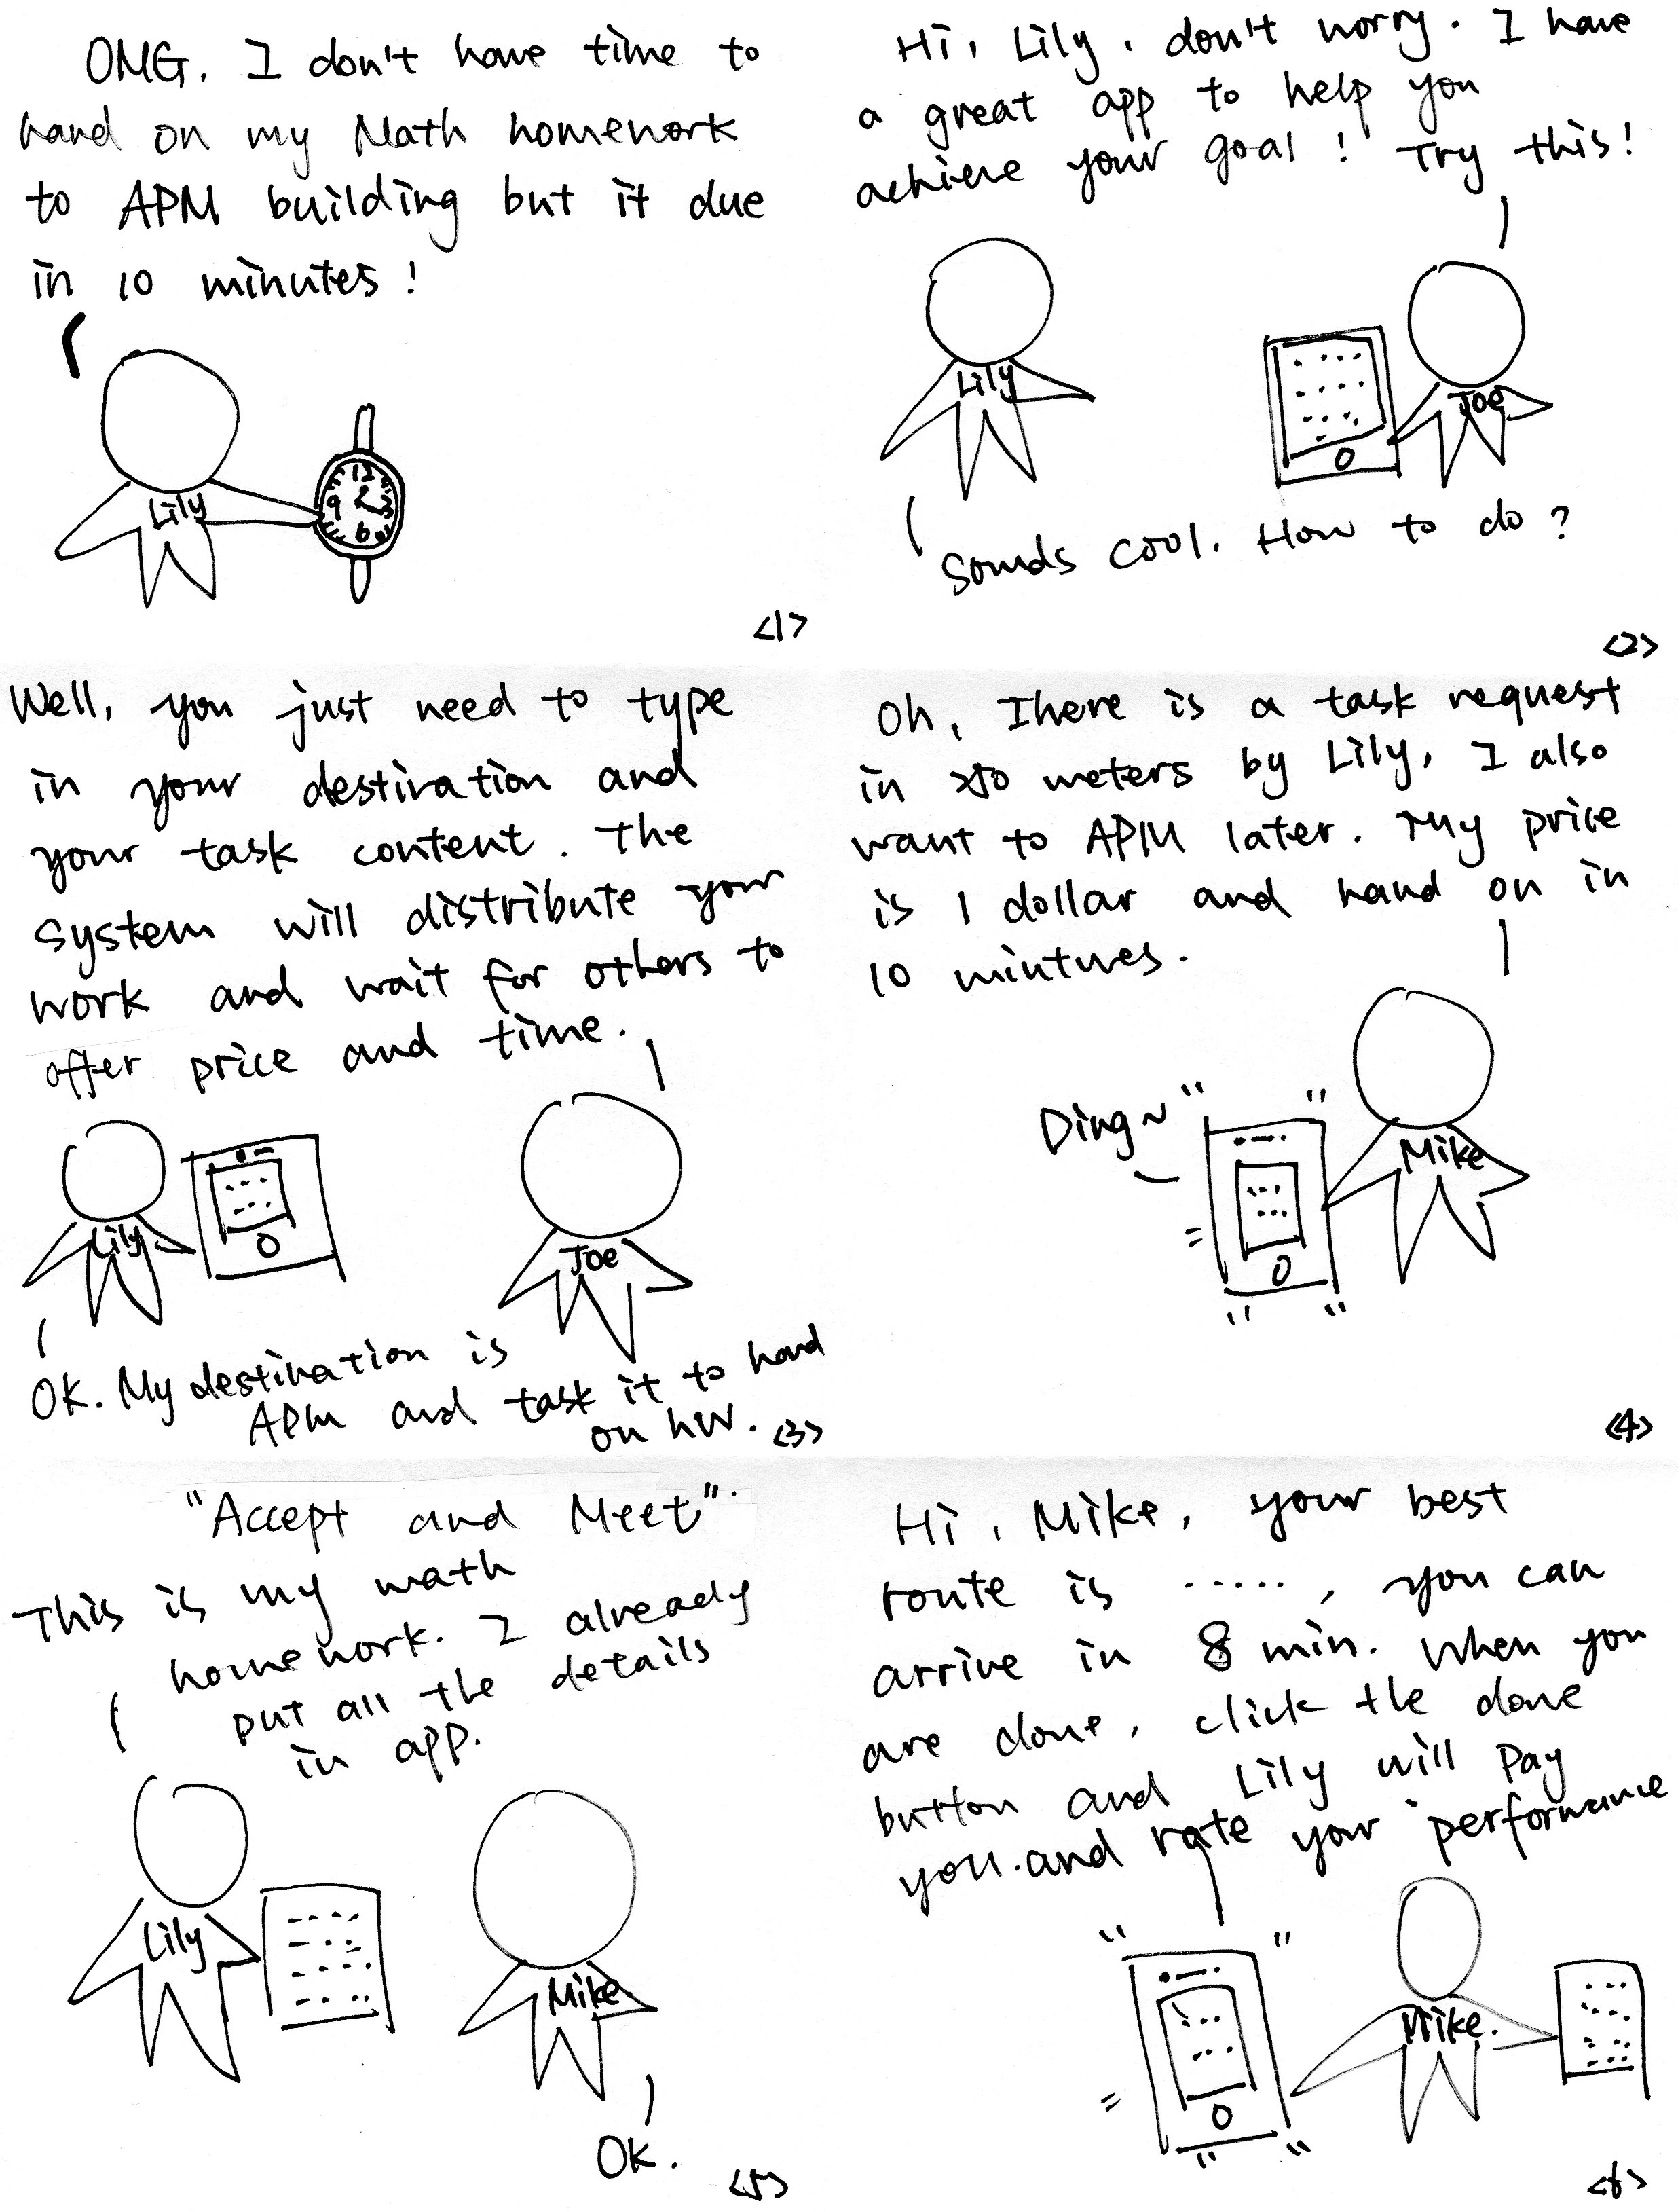 OMG. I don't have time to
hand on my Math homework
to APM building but it due
in 10 minutes!
Lily
12
9
3
6
<1>
Hi, Lily, don't worry. I have
a great app to help you
achieve your goal! Try this!
Lily
Joe
Sounds cool. How to do?
<2>
Well, you just need to type
in your destination and
your task content. The
system will distribute your
work and wait for others to
offer price and time.
Lily
Joe
OK. My destination is
APM and task it to hand
on hw.
<3>
Oh, There is a task request
in meters by Lily, I also
want to APM later. My price
is 1 dollar and hand on in
10 mintures.
Ding~
Mike
<4>
"Accept and Meet".
This is my math
homework. I already
put all the details
in app.
Lily
Mike
OK.
<5>
Hi, Mike, your best
route is ....., you can
arrive in 8 min. When you
are done, click the done
button and Lily will pay
you.and rate your performance
Mike.
<6>